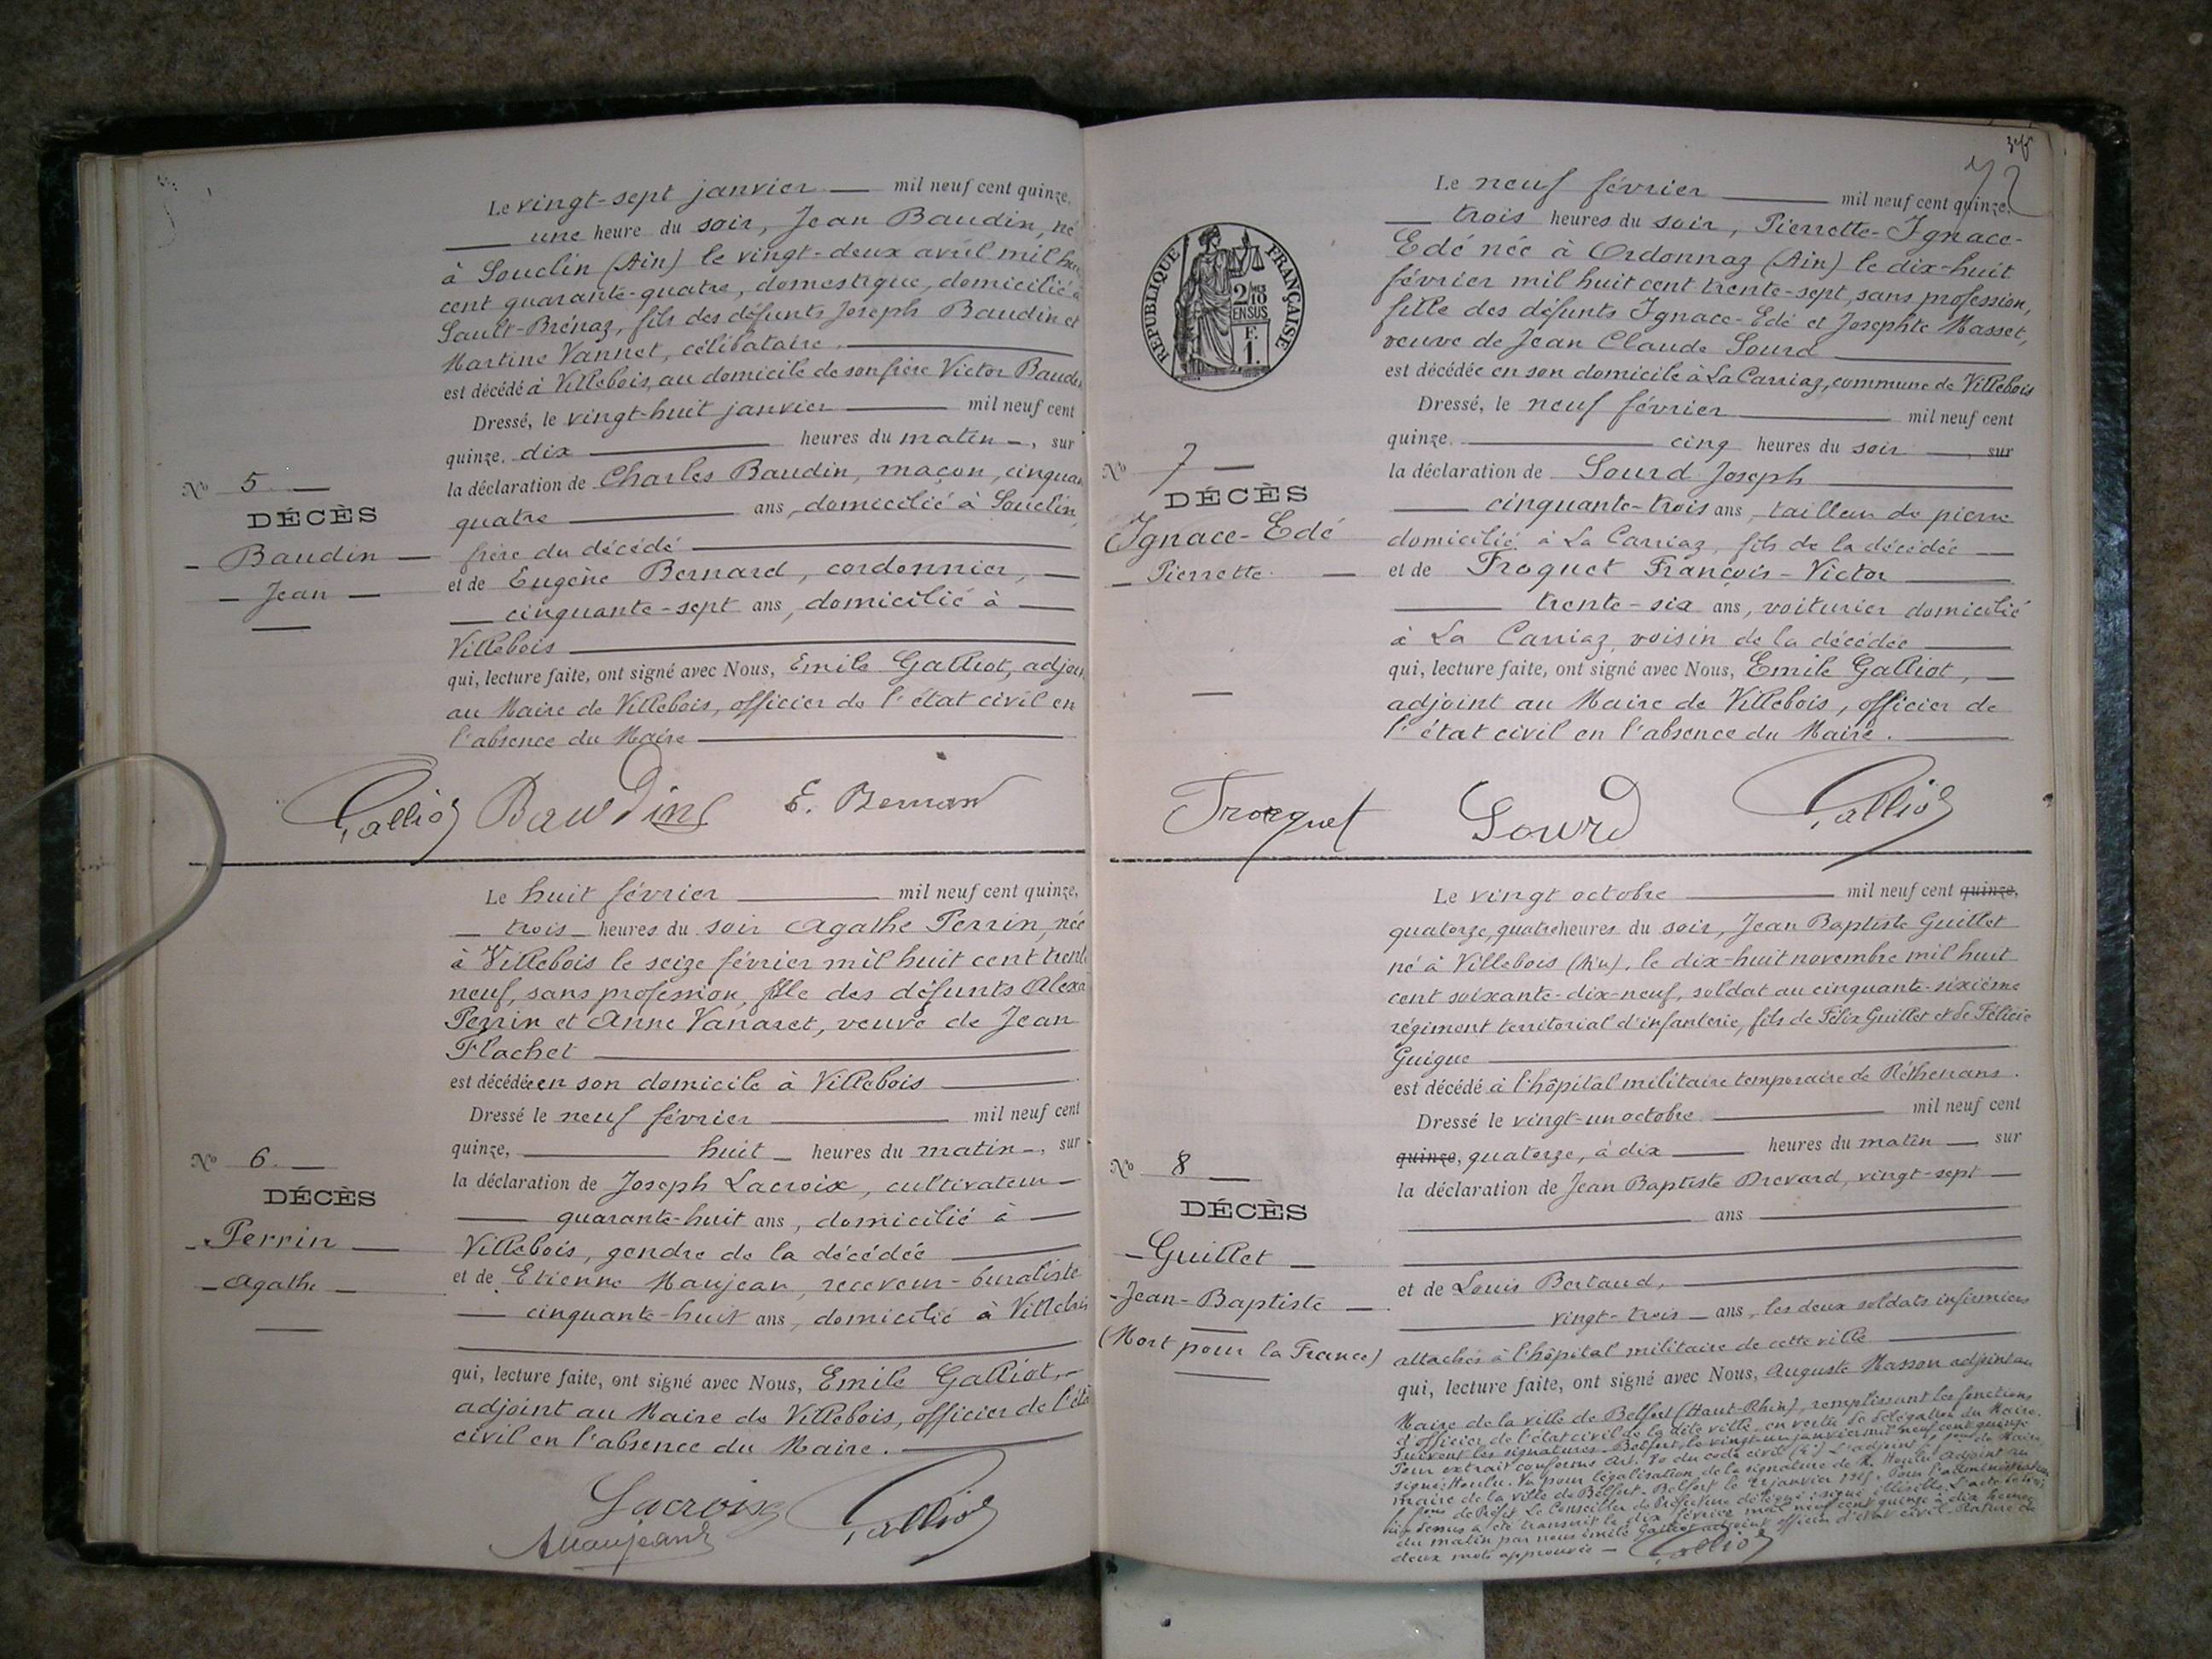 Le vingt-sept janvier — mil neuf cent quinze,
une heure du soir, Jean Baudin, né
à Souclin (Ain) le vingt-deux avril mil huit
cent quarante-quatre, domestique, domicilié à
Sault-Brénaz, fils des défunts Joseph Baudin et
Martine Vannet, célibataire.
est décédé à Villebois, au domicile de son frère Victor Baudin
Dressé, le vingt-huit janvier — mil neuf cent
quinze, dix — heures du matin —, sur
la déclaration de Charles Baudin, maçon, cinquan
quatre — ans, domicilié à Souclin,
frère du décédé
et de Eugène Bernard, cordonnier, —
— cinquante-sept ans, domicilié à —
Villebois
qui, lecture faite, ont signé avec Nous, Emile Galliot, adjoin
au Maire de Villebois, officier de l'état civil en
l'absence du Maire
Nº 5 —
DÉCÈS
— Baudin —
— Jean —
Galliot Baudin E. Bernard
Le huit février — mil neuf cent quinze,
— trois — heures du soir Agathe Perrin, née
à Villebois le seize février mil huit cent trente
neuf, sans profession, fille des défunts Alexa
Perrin et Anne Vanaret, veuve de Jean
Flachet
est décédée en son domicile à Villebois
Dressé le neuf février — mil neuf cent
quinze, — huit — heures du matin —, sur
la déclaration de Joseph Lacroix, cultivateur —
— quarante-huit ans, domicilié à —
Villebois, gendre de la décédée
et de Etienne Maujean, receveur-buraliste
— cinquante-huit ans, domicilié à Villebois
qui, lecture faite, ont signé avec Nous, Emile Galliot, —
adjoint au Maire de Villebois, officier de l'éta
civil en l'absence du Maire.
Nº 6. —
DÉCÈS
— Perrin —
— Agathe —
Lacroix Galliot
Maujean
RÉPUBLIQUE FRANÇAISE
2/10 EN SUS
F. 1.
Le neuf février — mil neuf cent quinze,
— trois heures du soir, Pierrette-Ignace-
Edé née à Ordonnaz (Ain) le dix-huit
février mil huit cent trente-sept, sans profession,
fille des défunts Ignace-Edé et Josephte Masset,
veuve de Jean Claude Sourd
est décédée en son domicile à La Carriaz, commune de Villebois
Dressé, le neuf février — mil neuf cent
quinze, — cinq heures du soir —, sur
la déclaration de Sourd Joseph
— cinquante-trois ans, tailleur de pierre
domicilié à La Carriaz, fils de la décédée —
et de Troquet François-Victor
— trente-six ans, voiturier domicilié
à La Carriaz, voisin de la décédée
qui, lecture faite, ont signé avec Nous, Emile Galliot, —
adjoint au Maire de Villebois, officier de
l'état civil en l'absence du Maire.
Nº 7 —
DÉCÈS
Ignace-Edé
— Pierrette —
Troquet Sourd Galliot
Le vingt octobre — mil neuf cent quinze,
quatorze, quatre heures du soir, Jean Baptiste Guillet
né à Villebois (Ain), le dix-huit novembre mil huit
cent soixante-dix-neuf, soldat au cinquante-sixième
régiment territorial d'infanterie, fils de Félix Guillet et de Félicie
Guigue
est décédé à l'hôpital militaire temporaire de Réthenans.
Dressé le vingt-un octobre — mil neuf cent
quinze, quatorze, à dix — heures du matin —, sur
la déclaration de Jean Baptiste Drevard, vingt-sept —
ans
et de Louis Bertaud,
— vingt-trois — ans, les deux soldats infirmiers
attachés à l'hôpital militaire de cette ville
qui, lecture faite, ont signé avec Nous, Auguste Masson adjoint au
Maire de la ville de Belfort (Haut-Rhin), remplissant les fonctions
d'officier de l'état civil de la dite ville, en vertu de délégation du Maire.
Suivent les signatures. Belfort, le vingt-un janvier mil neuf cent quinze
Pour extrait conforme Art. 80 du code civil L'adjoint fs pons de Maire,
signé: Houlu. Vu pour légalisation de la signature de M. Houlu adjoint au
maire de la ville de Belfort. Belfort le 21 janvier 1915. Pour l'administrateur
fs fons de Préfet Le Conseiller de Préfecture délégué: signé illisible. L'acte
ci-dessus a été transcrit le dix février mil neuf cent quinze à dix heures
du matin par nous Emile Galliot adjoint officier d'état civil. Rature de
deux mots approuvée — Galliot
Nº 8 —
DÉCÈS
— Guillet —
— Jean-Baptiste —
(Mort pour la France)